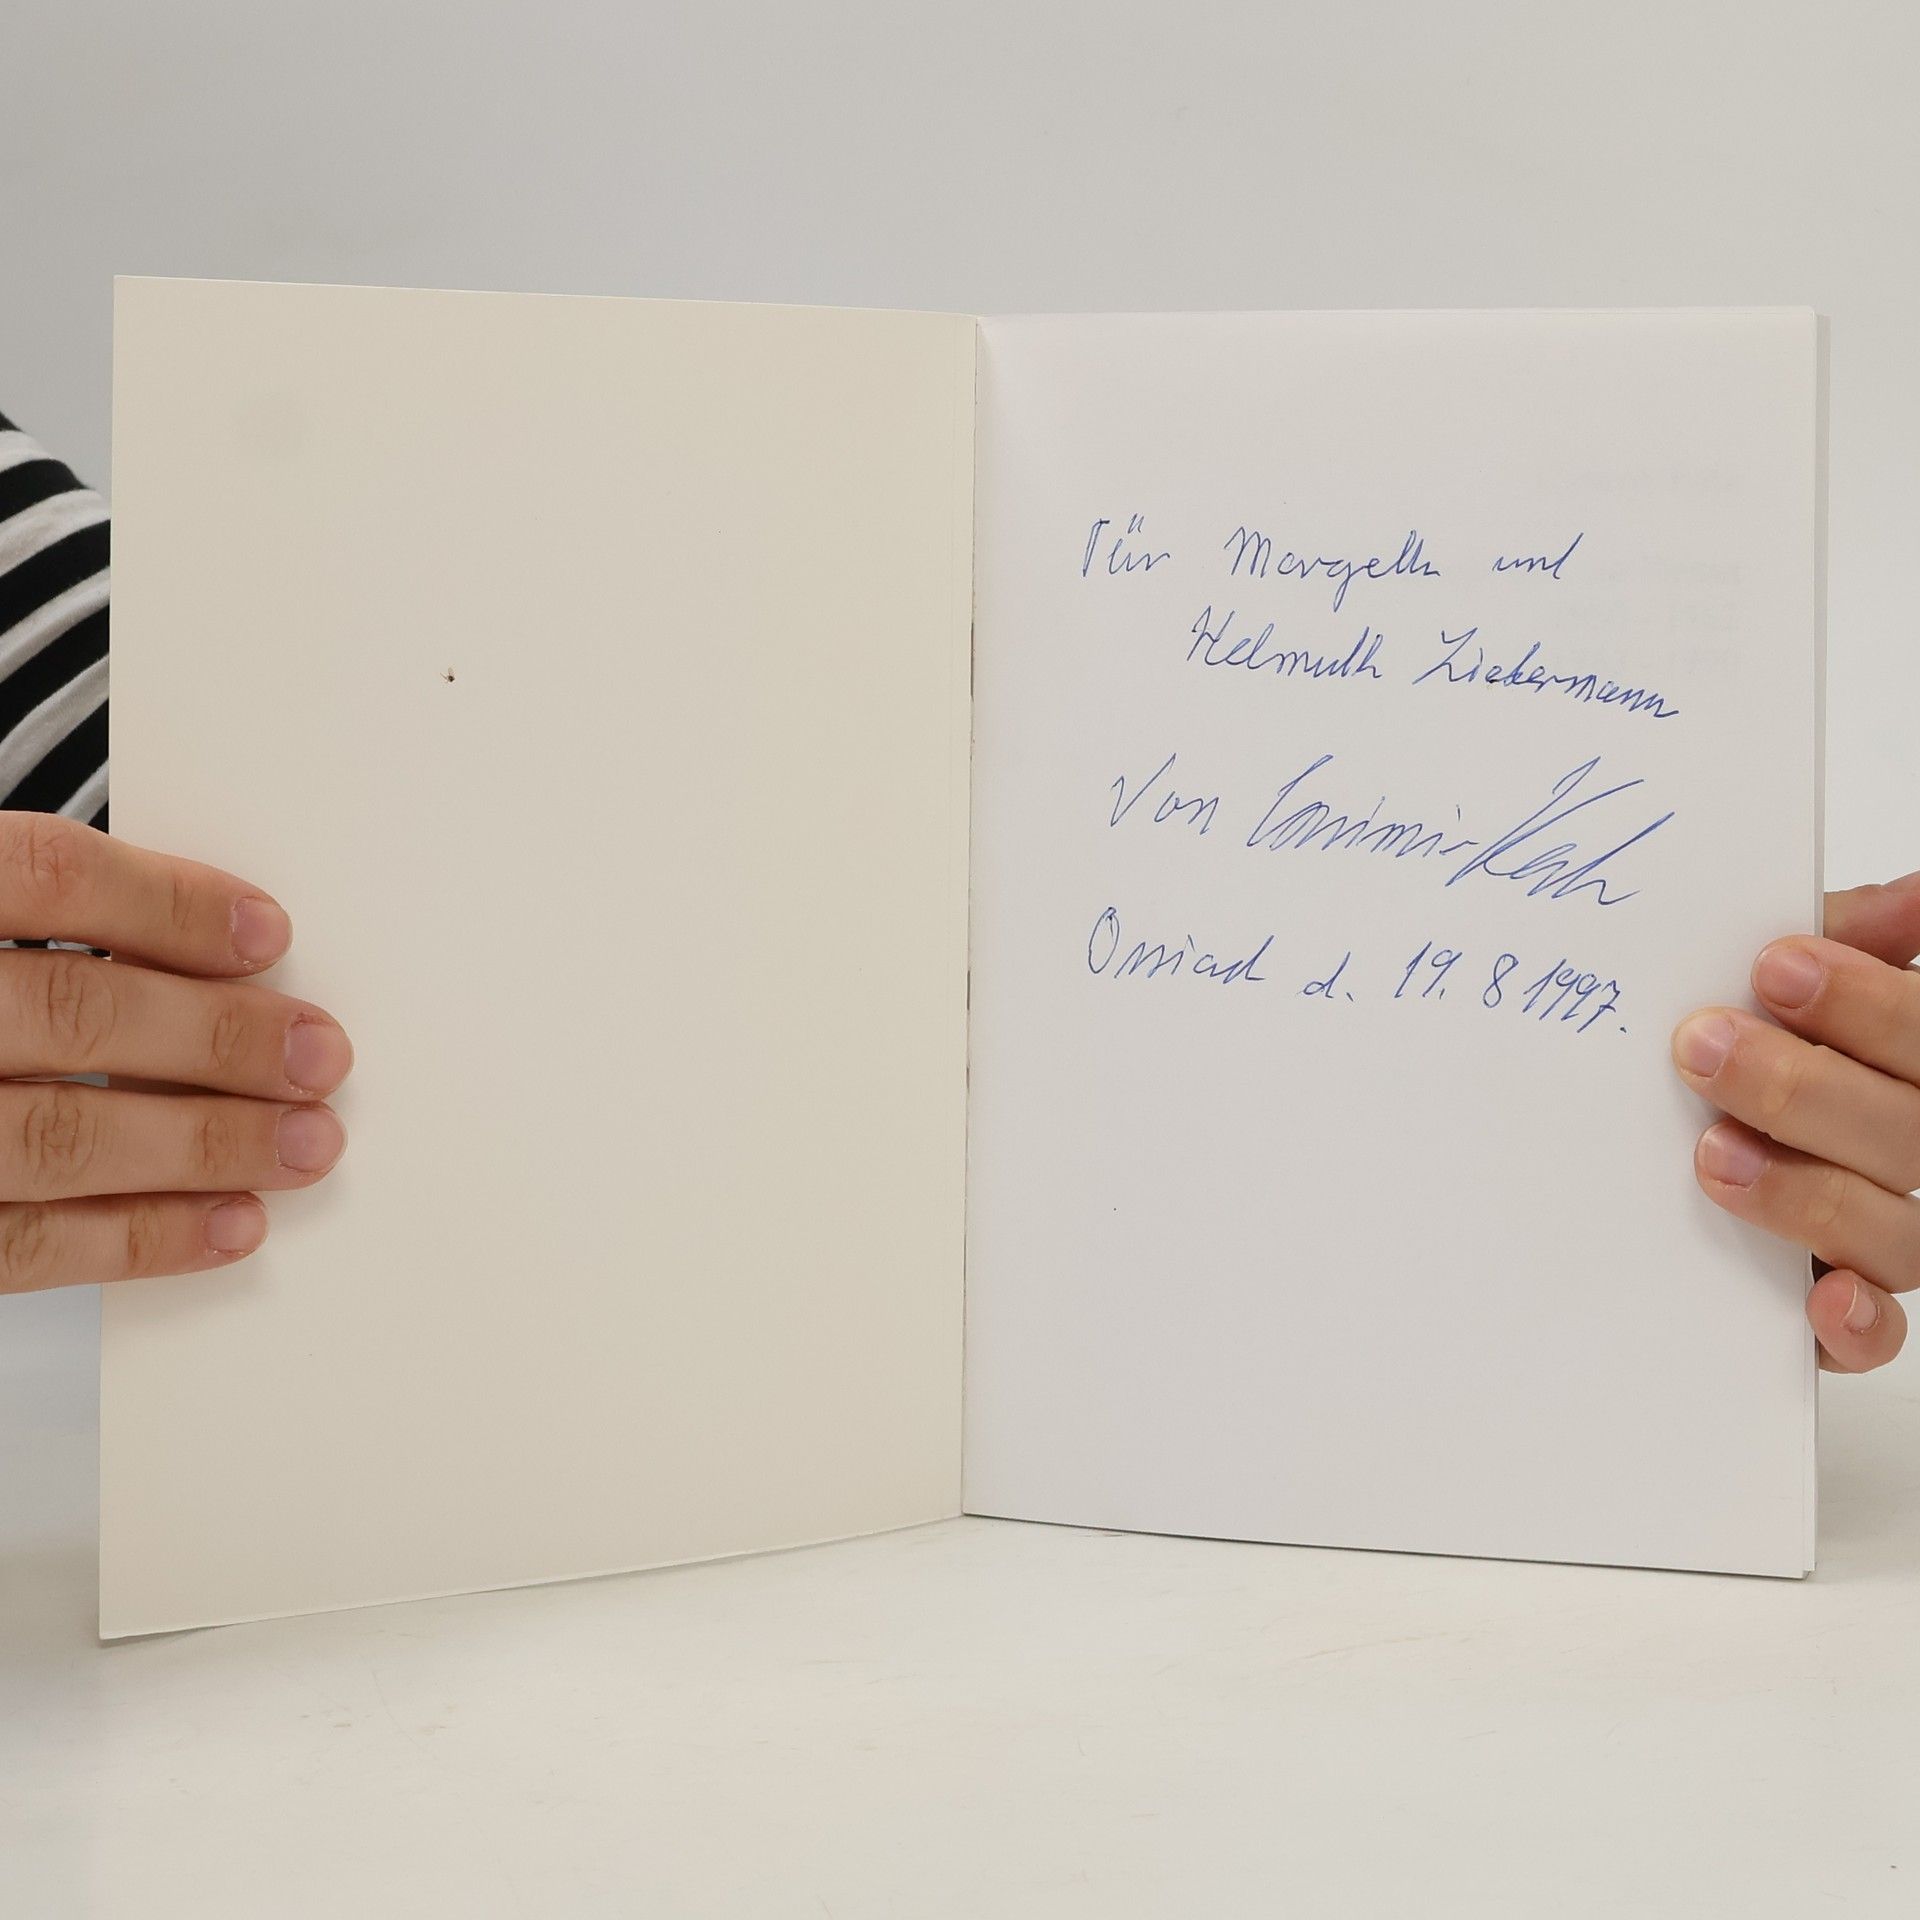 Für Margeth und
Helmuth Liebermann
Von Casimir
Ossiach d. 19. 8 1997.